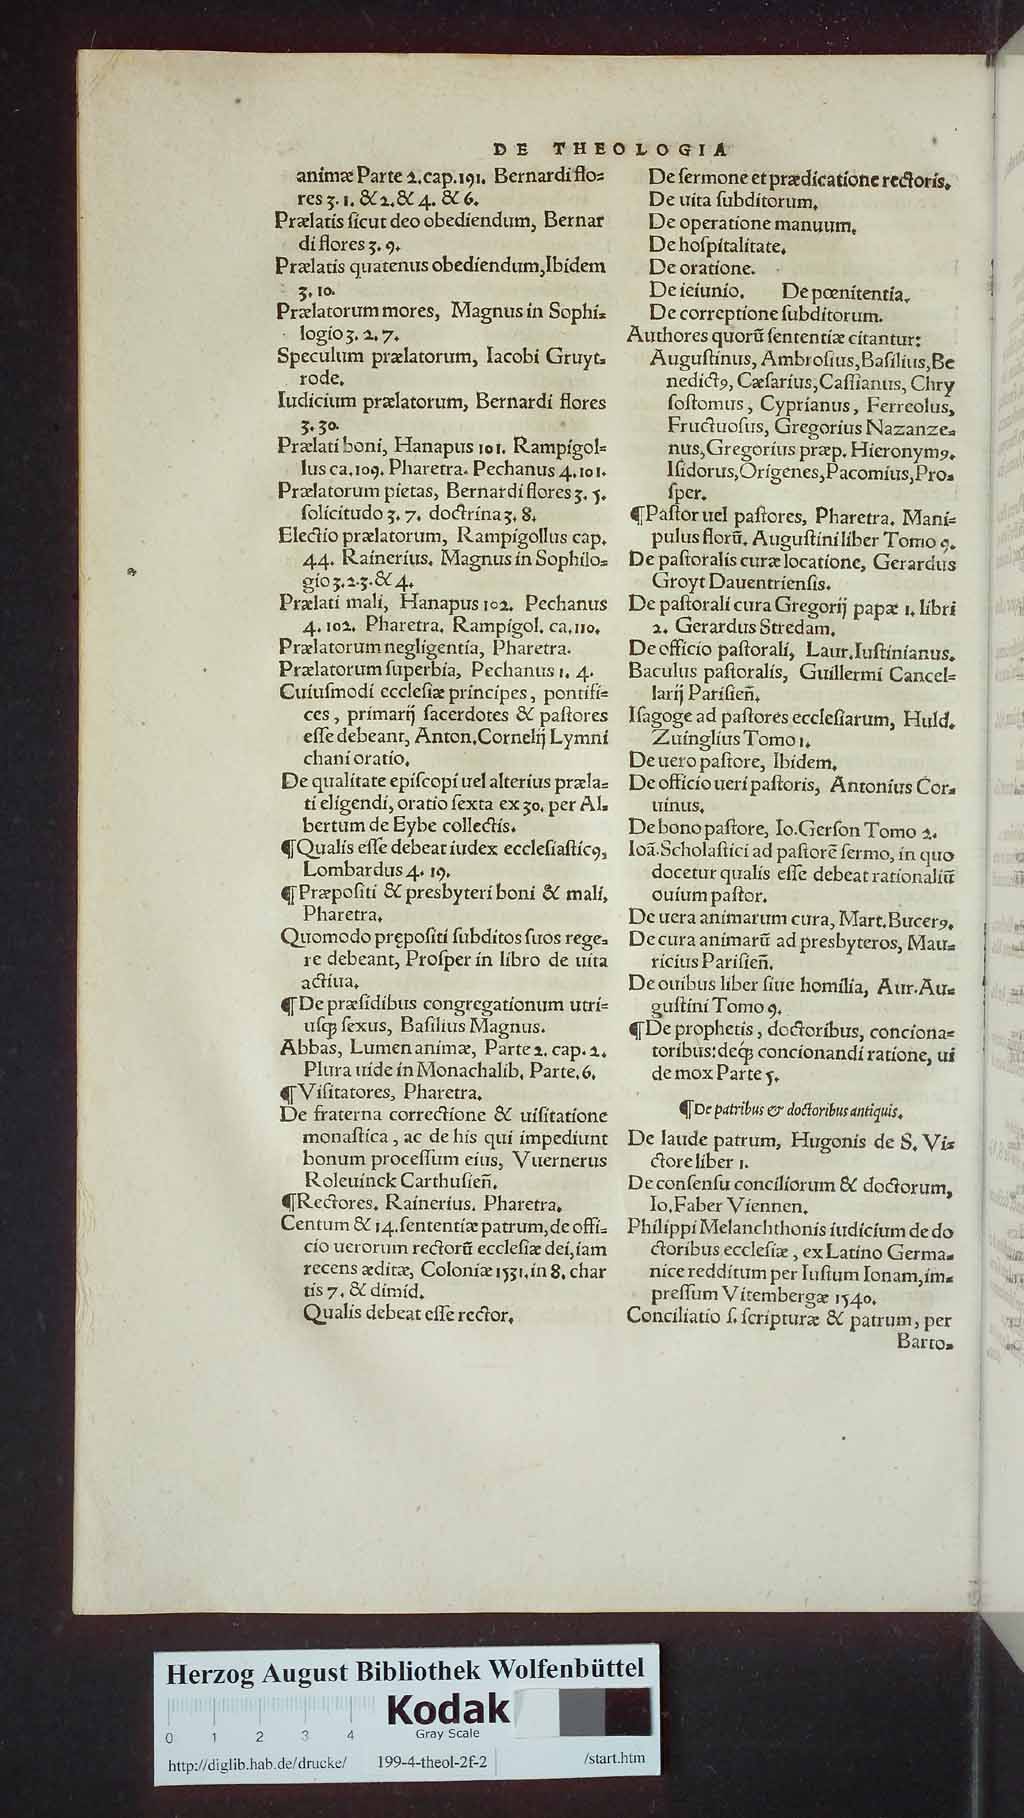 DE THEOLOGIA
animæ Parte 2. cap. 191. Bernardi flo⸗
res 3. 1. & 2. & 4. & 6.
Prælatis ſicut deo obediendum, Bernar
di flores 3. 9.
Prælatis quatenus obediendum, Ibidem
3. 10.
Prælatorum mores, Magnus in Sophi⸗
logio 3. 2. 7.
Speculum prælatorum, Iacobi Gruyt⸗
rode.
Iudicium prælatorum, Bernardi flores
3. 30.
Prælati boni, Hanapus 101. Rampigol⸗
lus ca. 109. Pharetra. Pechanus 4. 101.
Prælatorum pietas, Bernardi flores 3. 5.
ſolicitudo 3. 7. doctrina 3. 8.
Electio prælatorum, Rampigollus cap.
44. Rainerius. Magnus in Sophilo⸗
gio 3. 2. 3. & 4.
Prælati mali, Hanapus 102. Pechanus
4. 102. Pharetra. Rampigol. ca. 110.
Prælatorum negligentia, Pharetra.
Prælatorum ſuperbia, Pechanus 1. 4.
Cuiuſmodi eccleſiæ principes, pontifi⸗
ces, primarij ſacerdotes & paſtores
eſſe debeant, Anton. Cornelij Lymni
chani oratio.
De qualitate epiſcopi uel alterius præla⸗
ti eligendi, oratio ſexta ex 30. per Al⸗
bertum de Eybe collectis.
¶Qualis eſſe debeat iudex eccleſiaſticꝰ,
Lombardus 4. 19.
¶Præpoſiti & presbyteri boni & mali,
Pharetra.
Quomodo prępoſiti ſubditos ſuos rege⸗
re debeant, Proſper in libro de uita
actiua.
¶De præſidibus congregationum utri⸗
uſqꝫ ſexus, Baſilius Magnus.
Abbas, Lumen animæ, Parte 2. cap. 2.
Plura uide in Monachalib. Parte. 6.
¶Viſitatores, Pharetra.
De fraterna correctione & uiſitatione
monaſtica, ac de his qui impediunt
bonum proceſſum eius, Vuernerus
Roleuinck Carthuſien̄.
¶Rectores. Rainerius. Pharetra.
Centum & 14. ſententiæ patrum, de offi⸗
cio uerorum rectorū eccleſiæ dei, iam
recens æditæ, Coloniæ 1531. in 8. char
tis 7. & dimid.
Qualis debeat eſſe rector.
De ſermone et prædicatione rectoris.
De uita ſubditorum.
De operatione manuum.
De hoſpitalitate.
De oratione.
De ieiunio. De pœnitentia.
De correptione ſubditorum.
Authores quorū ſententiæ citantur:
Auguſtinus, Ambroſius, Baſilius, Be
nedictꝰ, Cæſarius, Caſſianus, Chry
ſoſtomus, Cyprianus, Ferreolus,
Fructuoſus, Gregorius Nazanze⸗
nus, Gregorius præp. Hieronymꝰ.
Iſidorus, Origenes, Pacomius, Pro⸗
ſper.
¶Paſtor uel paſtores, Pharetra. Mani⸗
pulus florū. Auguſtini liber Tomo 9.
De paſtoralis curæ locatione, Gerardus
Groyt Dauentrienſis.
De paſtorali cura Gregorij papæ 1. libri
2. Gerardus Stredam.
De officio paſtorali, Laur. Iuſtinianus.
Baculus paſtoralis, Guillermi Cancel⸗
larij Pariſien̄.
Iſagoge ad paſtores eccleſiarum, Huld.
Zuinglius Tomo 1.
De uero paſtore, Ibidem.
De officio ueri paſtoris, Antonius Cor⸗
uinus.
De bono paſtore, Io. Gerſon Tomo 2.
Ioā. Scholaſtici ad paſtorē ſermo, in quo
docetur qualis eſſe debeat rationaliū
ouium paſtor.
De uera animarum cura, Mart. Bucerꝰ.
De cura animarū ad presbyteros, Mau⸗
ricius Pariſien̄.
De ouibus liber ſiue homilia, Aur. Au⸗
guſtini Tomo 9.
¶De prophetis, doctoribus, conciona⸗
toribus: deqꝫ concionandi ratione, ui
de mox Parte 5.
¶De patribus & doctoribus antiquis.
De laude patrum, Hugonis de S. Vi⸗
ctore liber 1.
De conſenſu conciliorum & doctorum,
Io. Faber Viennen.
Philippi Melanchthonis iudicium de do
ctoribus eccleſiæ, ex Latino Germa⸗
nice redditum per Iuſtum Ionam, im⸗
preſſum Vitembergæ 1540.
Conciliatio ſ. ſcripturæ & patrum, per
Barto⸗
Herzog August Bibliothek Wolfenbüttel
Kodak
Gray Scale
0 1 2 3 4
http://diglib.hab.de/drucke/ 199-4-theol-2f-2 /start.htm